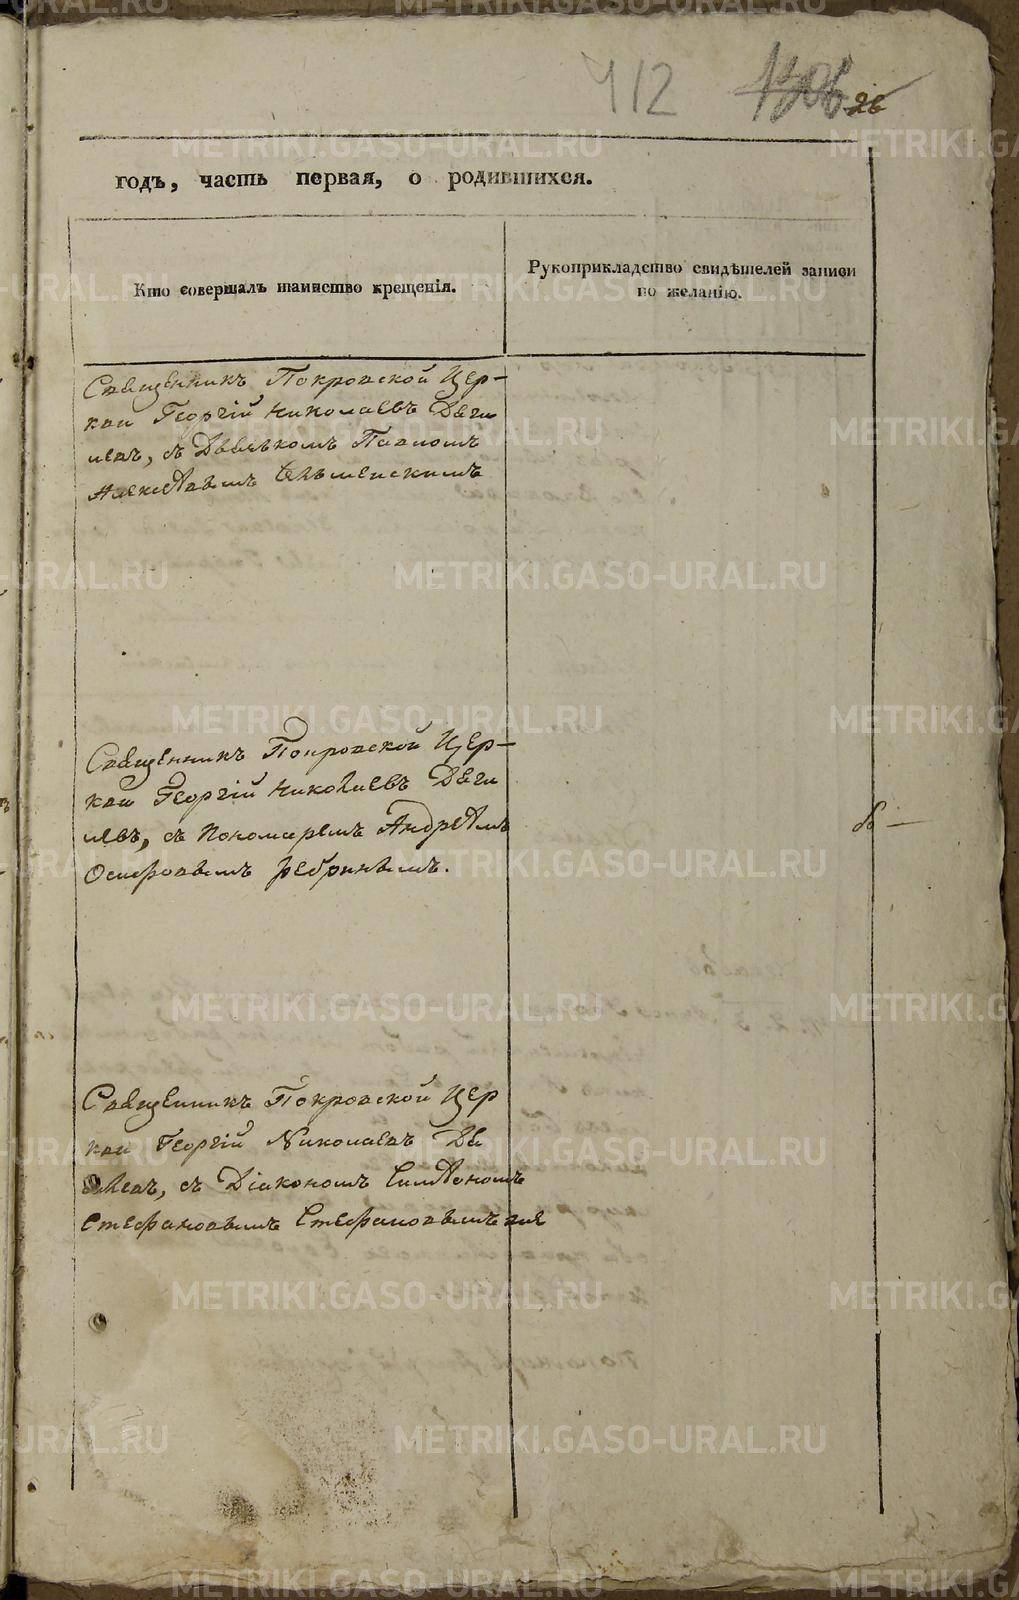 412 26
годъ, часть первая, о родившихся.
Кто совершалъ таинство крещенія.
Рукоприкладство свидѣтелей записи
по желанію.
Священникъ Покровской Цер-
кви Георгій Николаевъ Дяги
левъ, съ Дьячкомъ Павломъ
Священникъ Покровской Цер-
кви Георгій Николаевъ Дяги
левъ, съ Пономаремъ Андреемъ
Осиповымъ Ребринымъ.
Священникъ Покровской Цер
кви Георгій Николаевъ
съ Діакономъ Симеономъ
Стефановымъ
METRIKI.GASO-URAL.RU